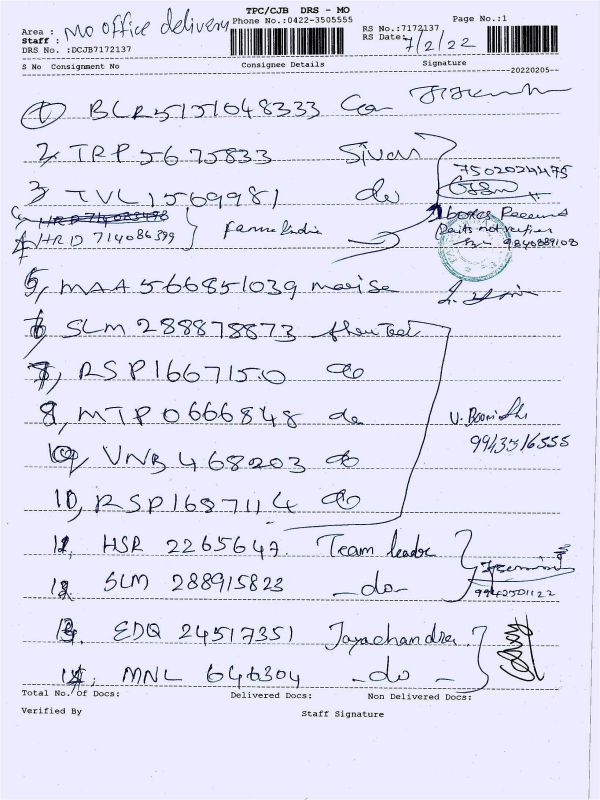 TPC/CJB DRS - MO
Area : MO office delivery Phone No.:0422-3505555 RS No.:7172137 Page No.:1
Staff : RS Date: 7/2/22
DRS No. :DCJB7172137
S No Consignment No Consignee Details Signature
20220205
1 BLR5151048333
2, TRP 5675833 Sivan
7502024475
3, TVL1569981 do
boxes Received
4, HRD 714086399 Farme India Parts not verifier
9840889108
5, MAA 566851039
6, SLM 288878873
7, RSP1667150 do
8, MTP0666848 do
9943516555
9, VNB 468203 do
10, RSP1687114 do
11, HSR 2265647. Team leader
12. SLM 288915823 -do-
9942501122
13. EDQ 24517351 Jayachandra.
14, MNL 646304 -do-
Total No. of Docs: Delivered Docs: Non Delivered Docs:
Verified By Staff Signature